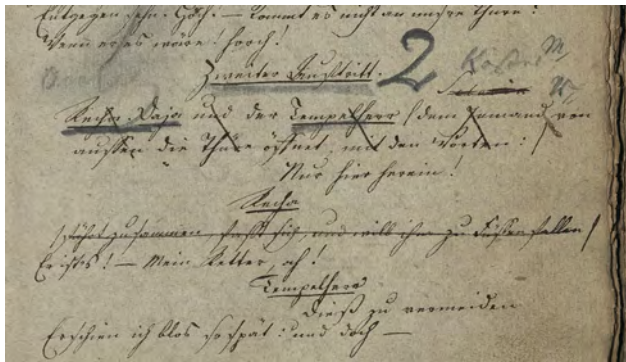 Entgegen sehn. Horch! — Kommt es nicht an unsre Thüre?
Wenn er es wäre! horch!
Zweiter Auftritt. 2
Recha. Daja und der Tempelherr /dem Jemand von
aussen die Thüre öffnet, mit den Worten:/
Nur hier herein!
Recha
/fährt zusammen, faßt sich, und will ihm zu Füssen fallen/
Er ists! — Mein Retter, ah!
Tempelherr
Dieß zu vermeiden
Erschien ich blos so spät: und doch —